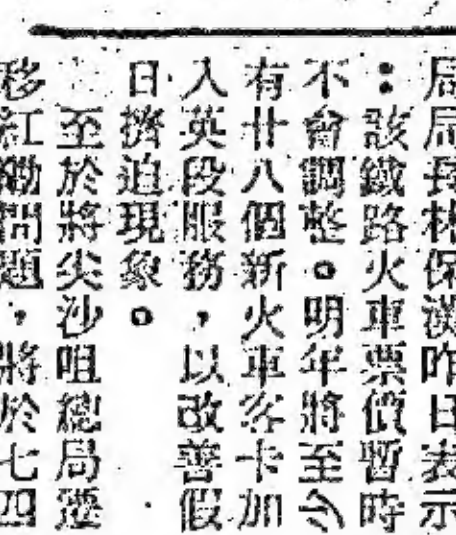 局局長林保漢昨日表示
：該鐵路火車票價暫時
不會調整。明年將至少
有廿八個新火車客卡加
入英段服務，以改善假
日擠迫現象。
至於將尖沙咀總局遷
移紅磡問題，將於七四